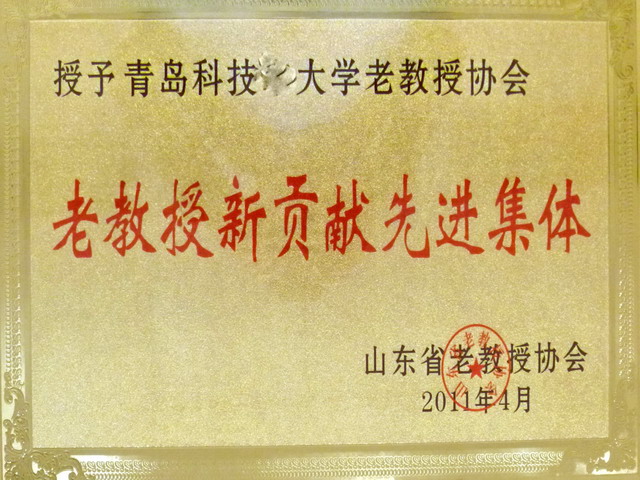 授予青岛科技大学老教授协会
老教授新贡献先进集体
山东省老教授协会
2011年4月
山东省老教授协会